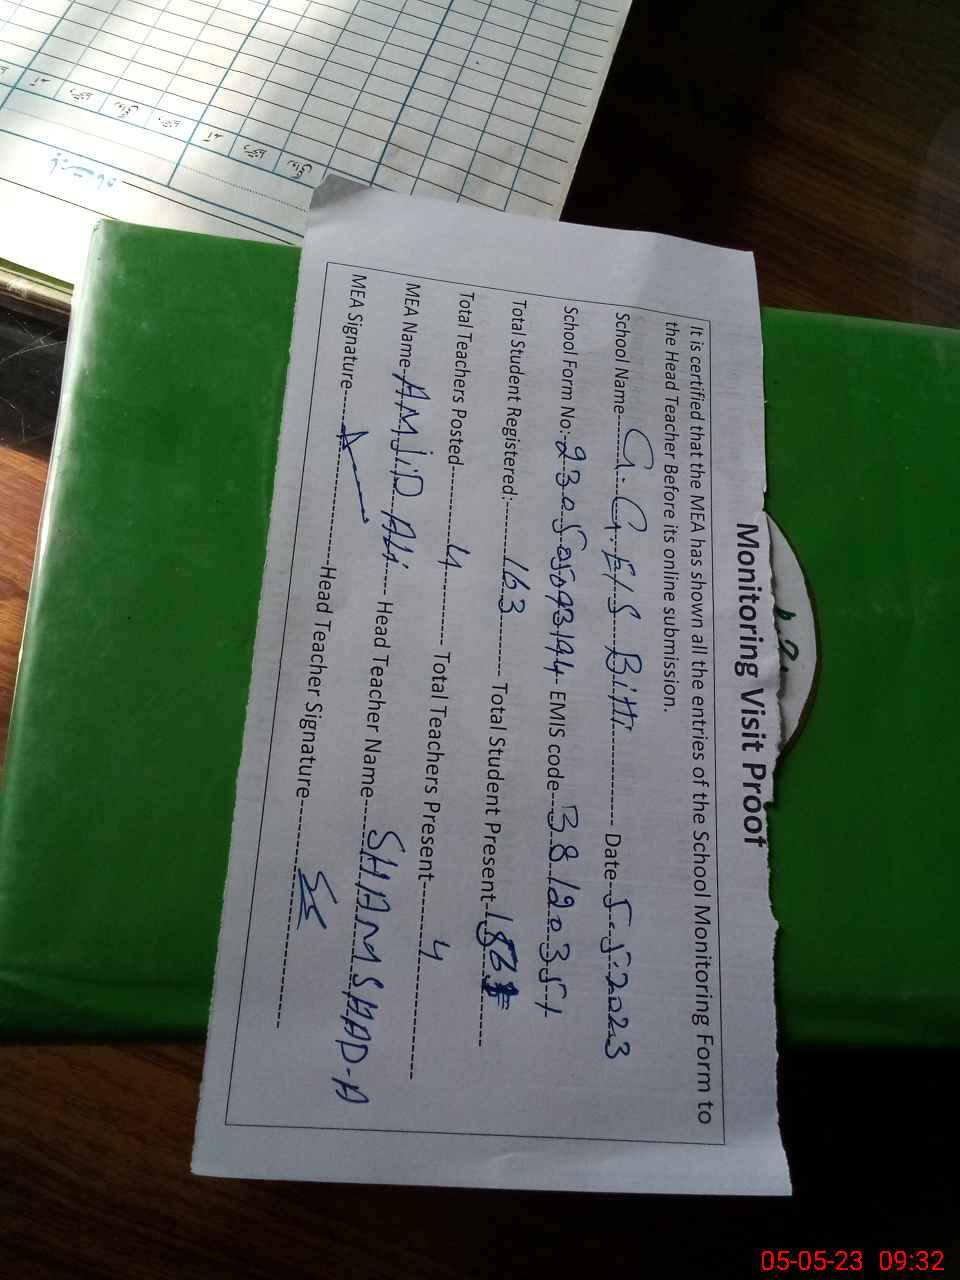 Monitoring Visit Proof
It is certified that the MEA has shown all the entries of the School Monitoring Form to
the Head Teacher Before its online submission.
School Name---------G.G.E/S Bitti------------ Date---5-5-2023
School Form No:-2305 EMIS code---38120351
Total Student Registered:------163-------- Total Student Present--186
Total Teachers Posted---------4---------- Total Teachers Present---------4-----------
MEA Name-AMJiD Ali---- Head Teacher Name----SHAMSHAD-A
MEA Signature-----------------------Head Teacher Signature--------------------
05-05-23 09:32